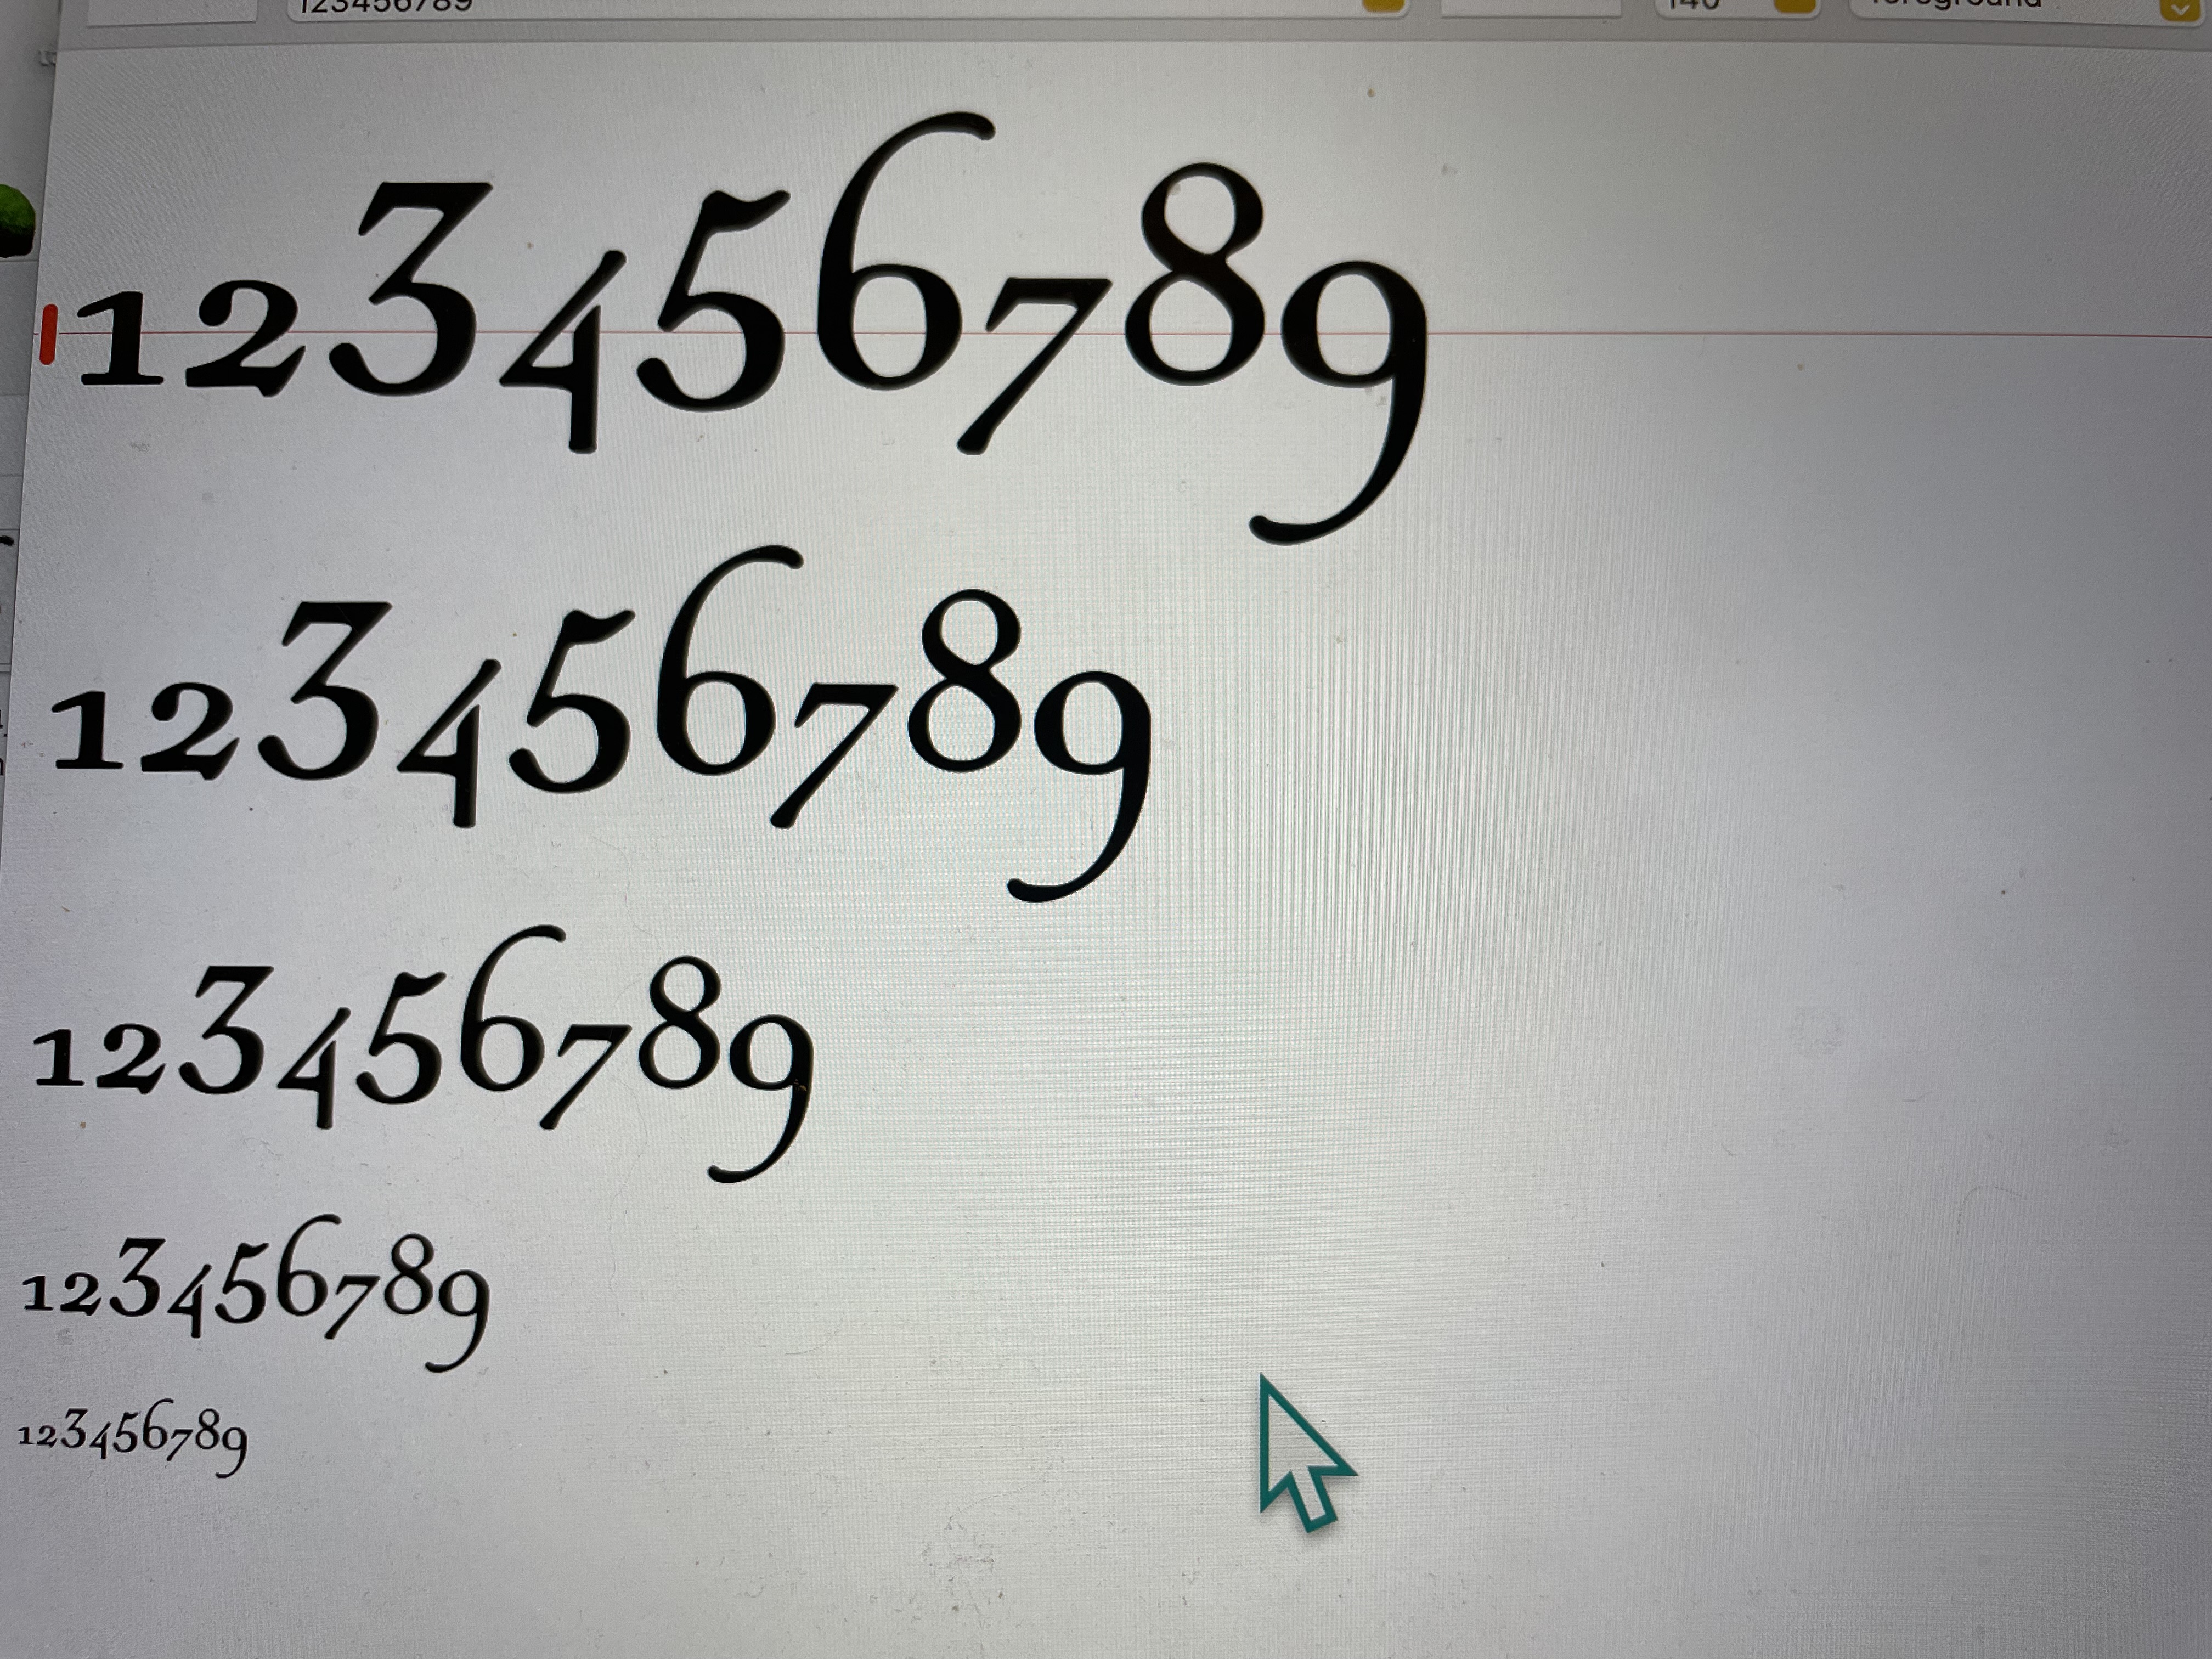 123456789
140
foreground
123456789
123456789
123456789
123456789
123456789